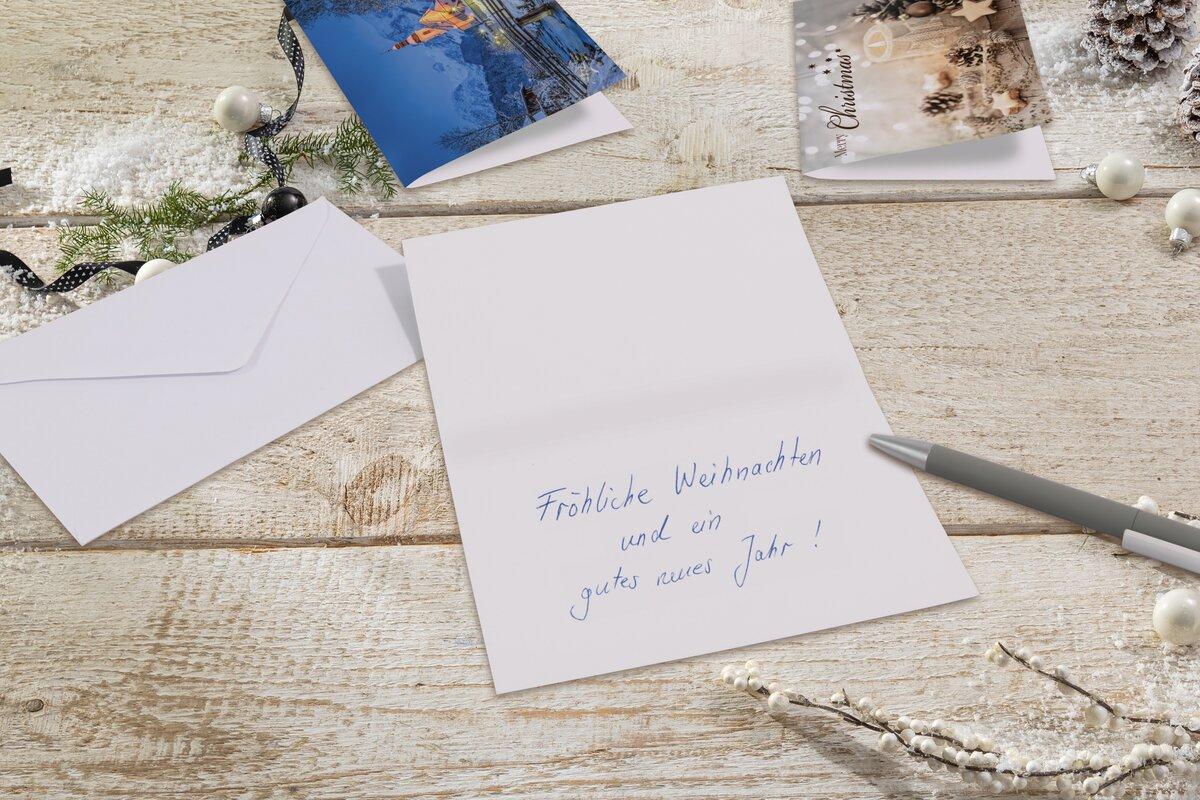 Merry Christmas
Fröhliche Weihnachten
und ein
gutes neues Jahr !